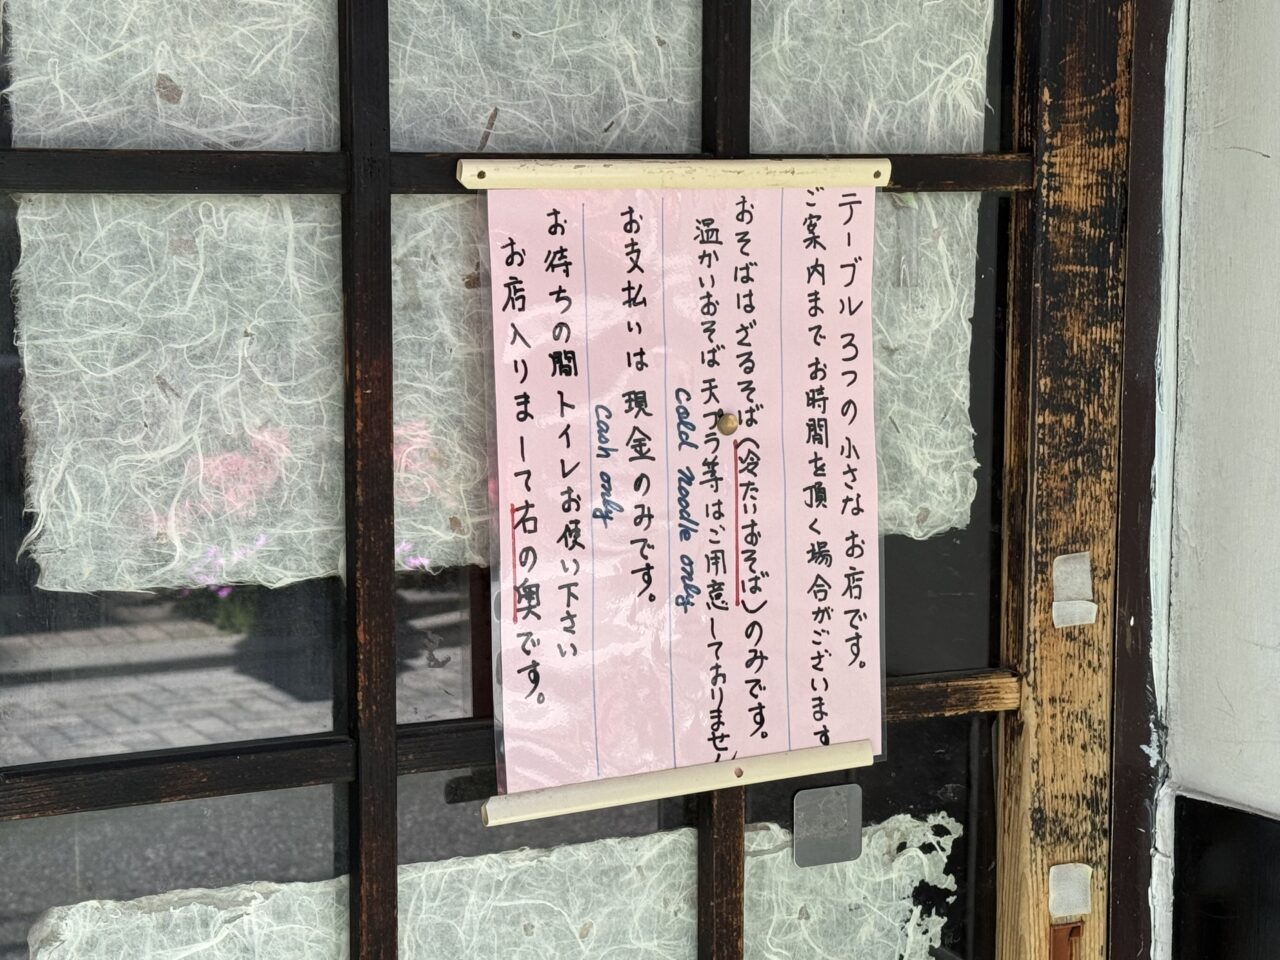 テーブル3つの小さなお店です。
ご案内までお時間を頂く場合がございます
おそばはざるそば(冷たいおそば)のみです。
温かいおそば天プラ等はご用意しておりません
Cold noodle only
お支払いは現金のみです。
Cash only
お待ちの間トイレお使い下さい
お店入りまして右の奥です。